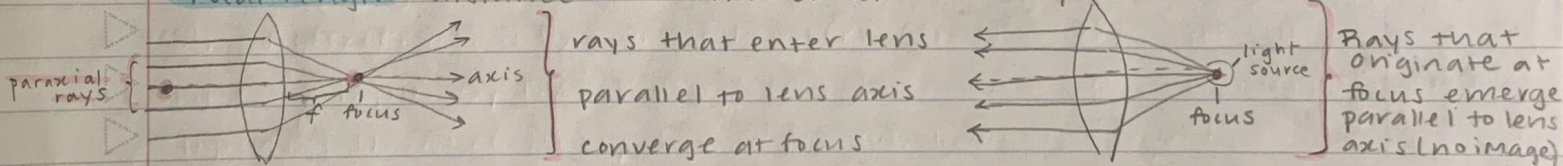 paraxial
rays
f
focus
axis
rays that enter lens
parallel to lens axis
converge at focus
light
source
focus
Rays that
originate at
focus emerge
parallel to lens
axis (no image)